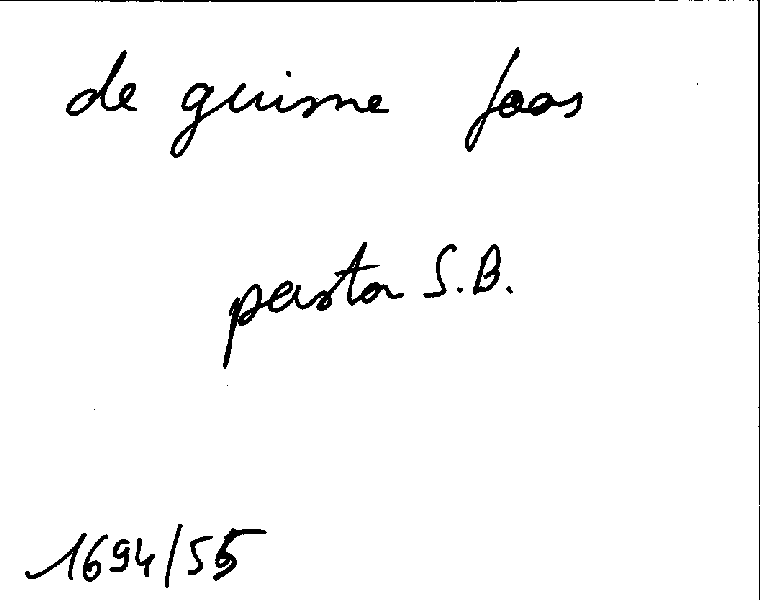 de guisne Joos
pastor S.B.
1694/55